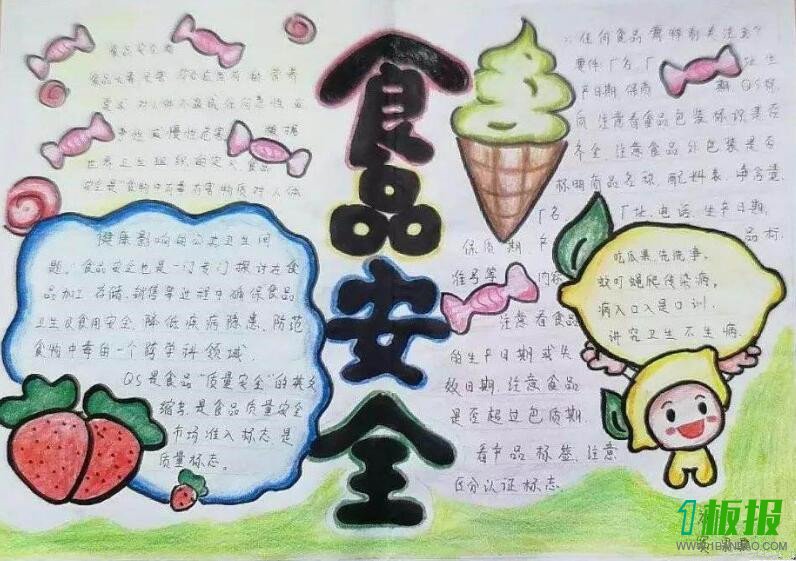 食品安全
食品安全
食品无毒、无害,符合应当有的营养
要求,对人体不造成任何急性、亚
急性或慢性危害。根据
世界卫生组织的定义,食品
安全是食物中有毒、有害物质对人体
健康影响的公共卫生问
题。食品安全也是一门专门探讨在食
品加工、存储、销售等过程中确保食品
卫生及食用安全,降低疾病隐患,防范
食物中毒的一个跨学科领域。
QS是食品“质量安全”的英文
缩写,是食品质量安全
市场准入标志,是
质量标志。
任何食品需特别关注五个
要件:厂名、厂址、生
产日期、保质期、QS标
向。注意看食品包装标识是否
齐全,注意食品外包装是否
标明商品名称、配料表、净含量、
厂名、厂址、电话、生产日期、
保质期、产品标
准号等内容。
注意看食品
的生产日期或失
效日期,注意食品
是否超过包质期。
看产品标签,注意
区分认证标志。
吃瓜果,先洗净,
蚊叮蝇爬传染病,
病入口入是口训,
讲究卫生不生病。
1板报
WWW.1BANBAO.COM